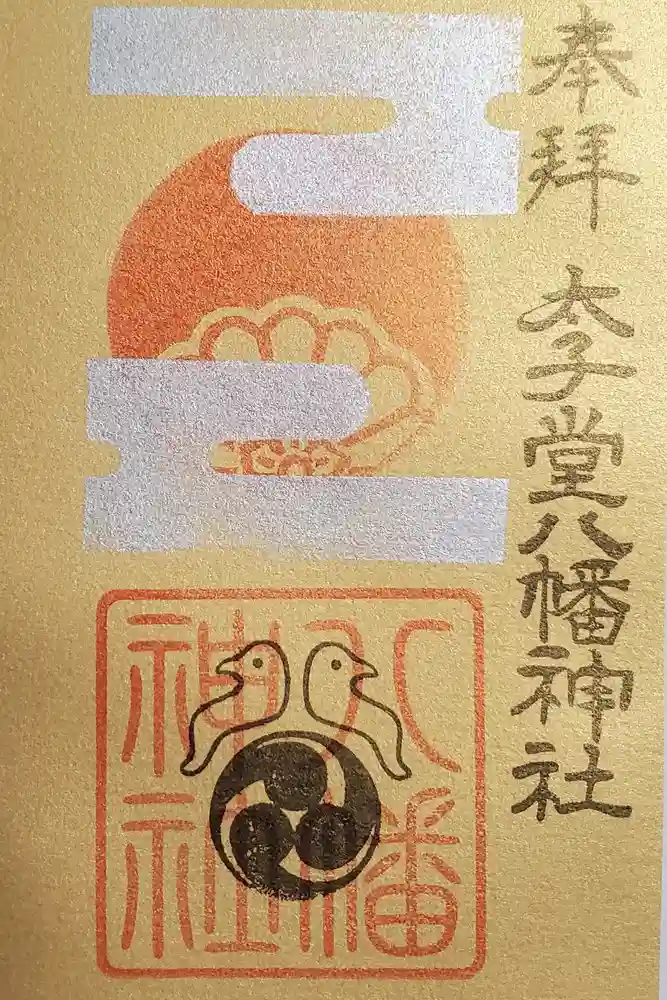 奉拝 太子堂八幡神社
八幡
神社